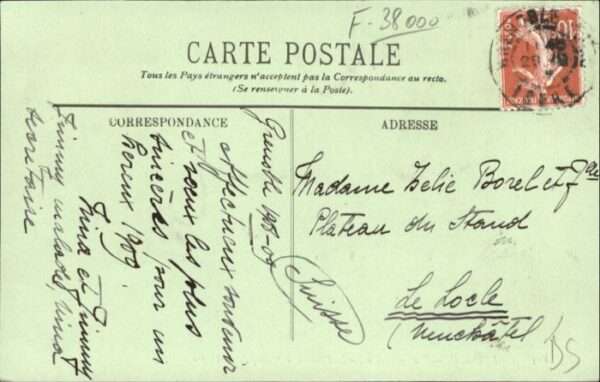 F-38000
CARTE POSTALE
Tous les Pays étrangers n'acceptent pas la Correspondance au recto.
(Se renseigner à la Poste).
CORRESPONDANCE
ADRESSE
Grenoble 1908-09
Affectueux souvenir
et voeux les plus
sincères pour un
heureux 1909.
Nina et Jimmy
Jimmy malade, Nina
secrétaire
Madame Zélie Borel et fle
Plateau du Stand
Le Locle
(Neuchâtel
(Suisse)
10
GRENOBLE
ISERE
DS